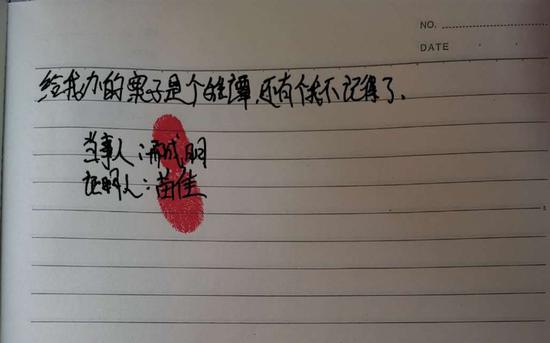 NO.
DATE
给我办的案子是个姓谭，还有个我不记得了.
当事人：邢成明
证明人：苗佳